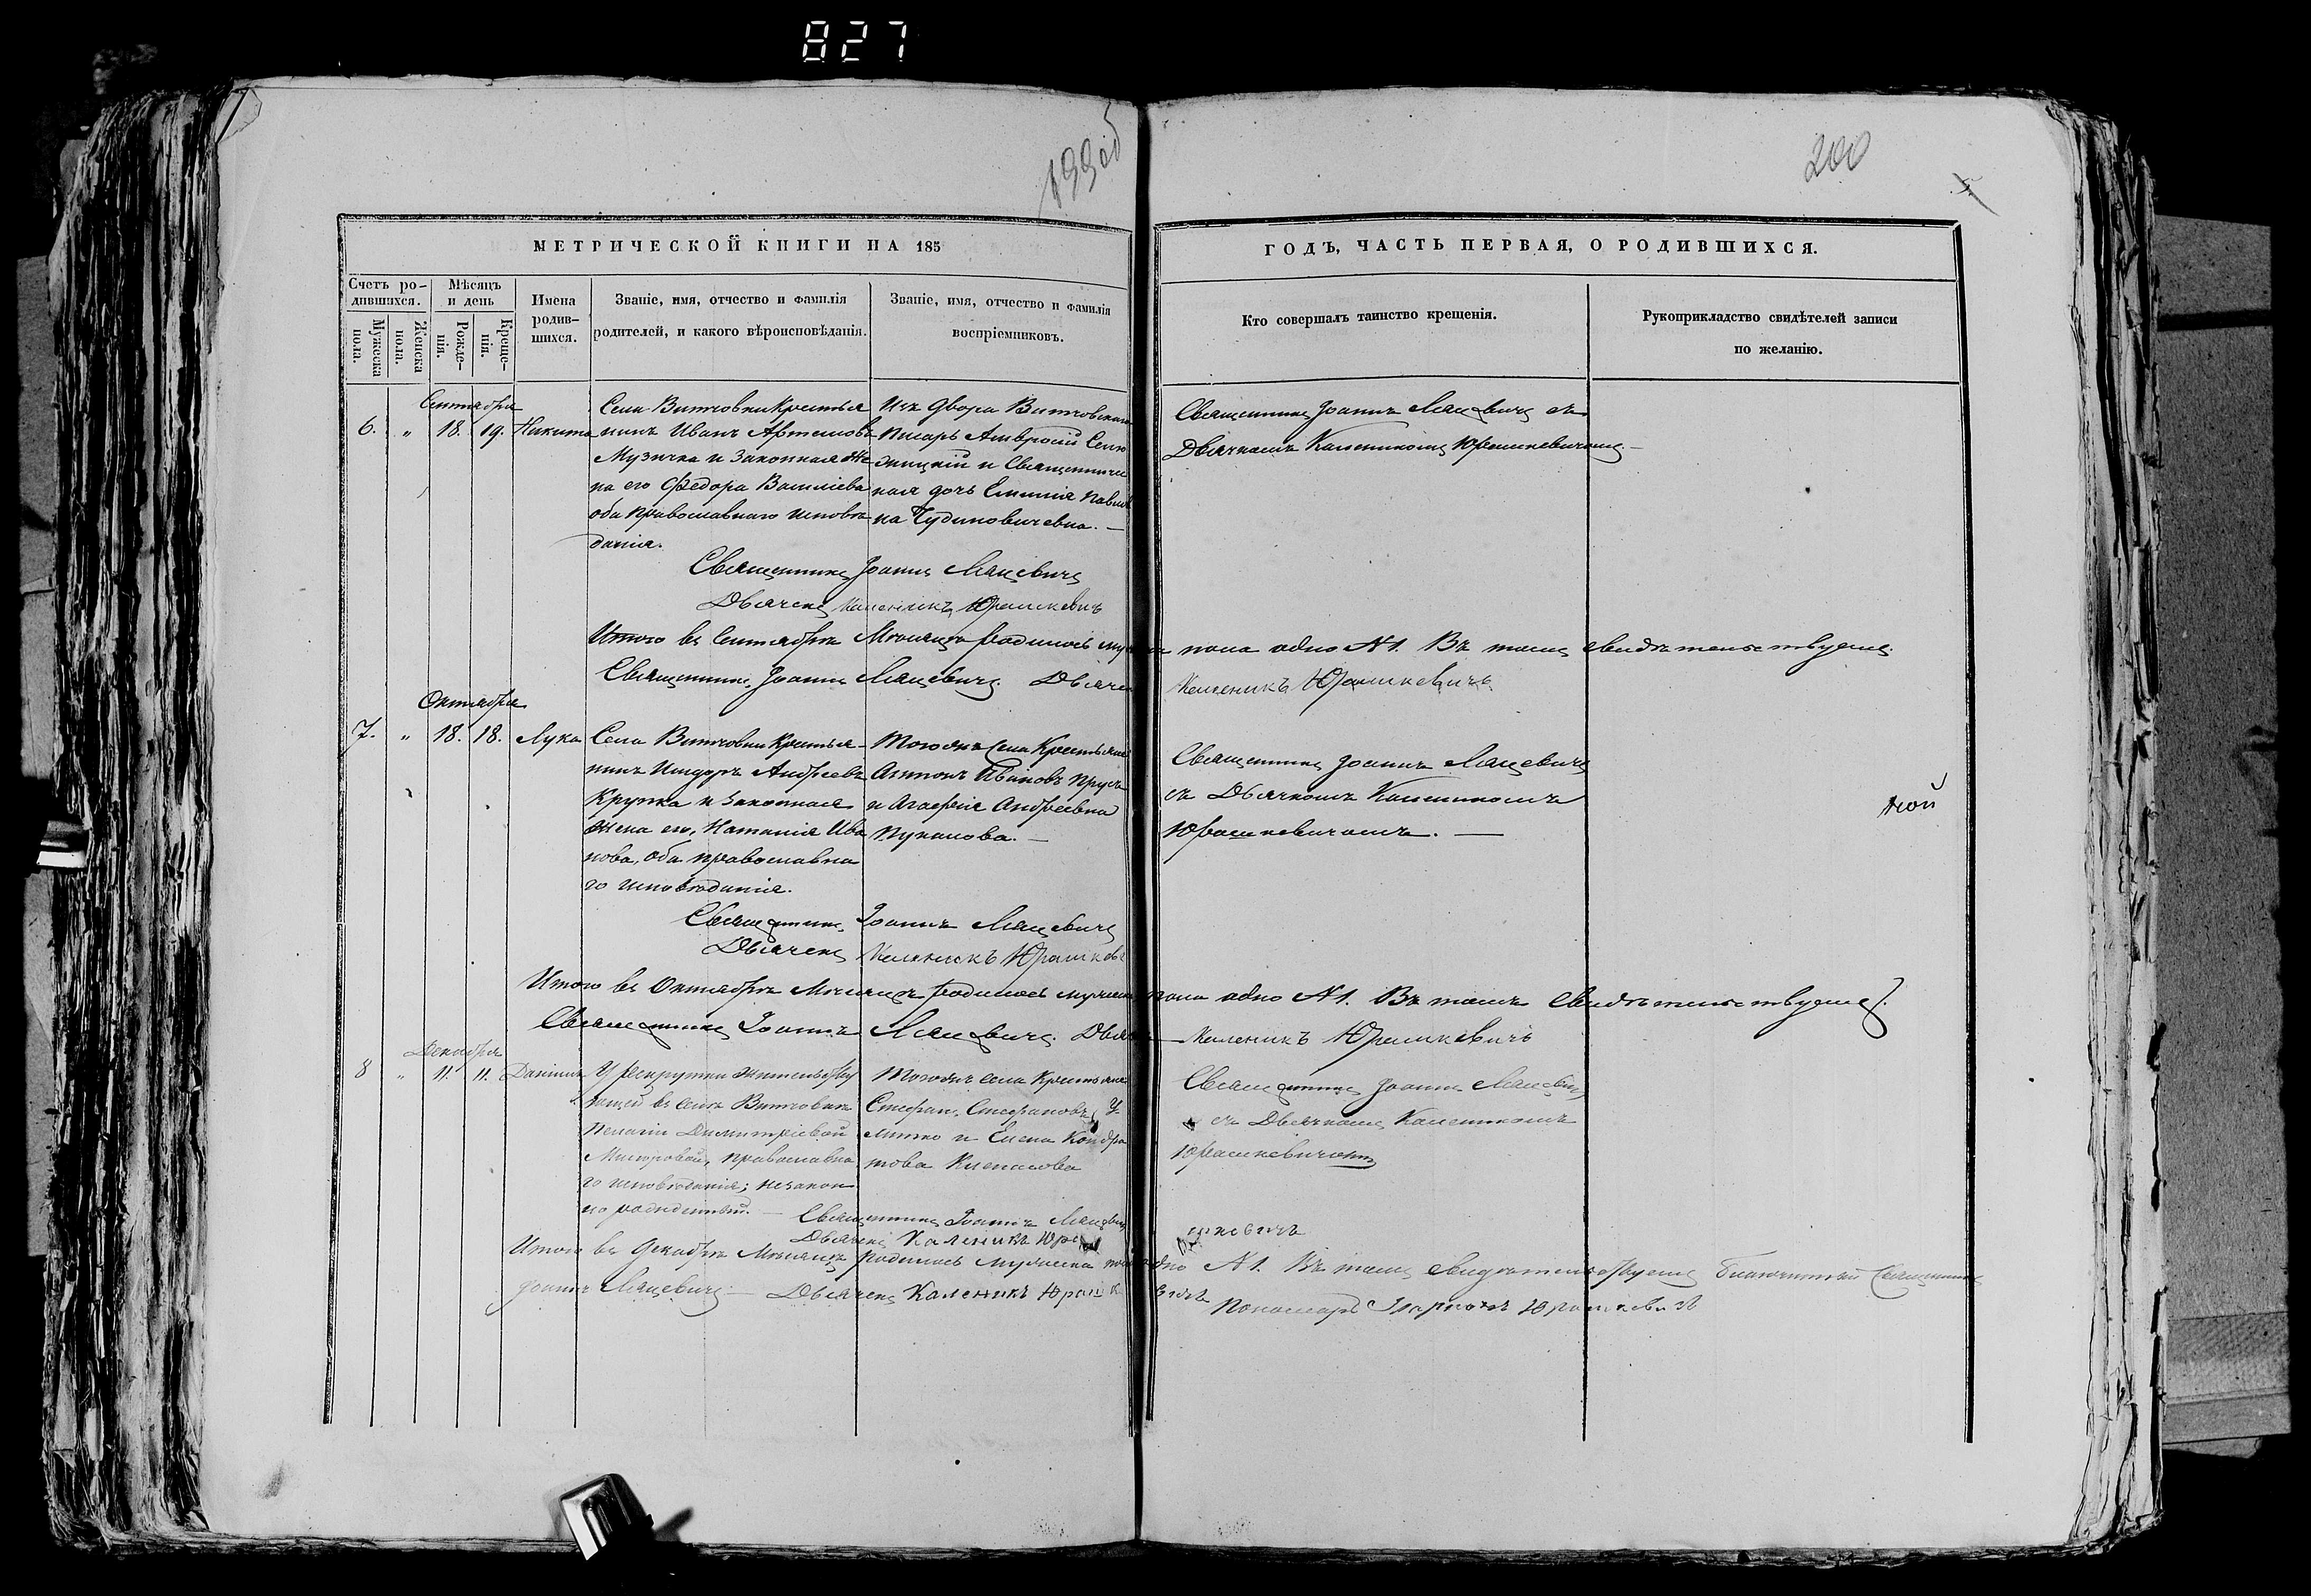 827
199об
200
5
МЕТРИЧЕСКОЙ КНИГИ НА 185
ГОДЪ, ЧАСТЬ ПЕРВАЯ, О РОДИВШИХСЯ.
Счетъ ро-
дившихся.
Мужеска
пола.
Женска
пола.
Мѣсяцъ
и день
Рожде-
нія.
Креще-
нія.
Имена
родив-
шихся.
Званіе, имя, отчество и фамилія
родителей, и какого вѣроисповѣданія.
Званіе, имя, отчество и фамилія
воспріемниковъ.
Кто совершалъ таинство крещенія.
Рукоприкладство свидѣтелей записи
по желанію.
Сентября
6. " 18. 19. Никита
Села Витчовки Крестья
нинъ Иванъ Артемовъ
Музычка и законная Же
на его Ѳедора Василіева
оба православнаго исповѣ
данія.
Изъ двора Витчовскаго
Писарь Амвросій
и Священниче
ская дочь Емилія Павлов
на Чудиновичевна. —
Священникъ Іоаннъ Ляцевичъ съ
Дьячкомъ Калеником Юрашкевичомъ —
Священникъ Іоаннъ Ляцевичъ
Дьячекъ Каленикъ Юрашкевичъ
Итого въ Сентябрѣ Мѣсяцѣ родилось муж пола одно №1. Въ томъ свидѣтельствуемъ.
Священникъ Іоаннъ Ляцевичъ. Дьячекъ Каленикъ Юрашкевичъ.
Октября
7. " 18. 18. Лука
Села Витчовки Крестья-
нинъ Исидоръ Андреевъ
Крупка и законная
жена его, Наталія Ива
нова, оба православна
го исповѣданія.
Того же села Крестьянинъ
Антонъ Ивановъ Прусъ
и Агафія Андреевна
Пукалова. —
Священникъ Іоаннъ Ляцевичъ
съ Дьячкомъ Калеником
Юрашкевичомъ. —
той
Священникъ Іоаннъ Ляцевичъ
Дьячекъ Каленикъ Юрашкевъ
Итого въ Октябрѣ Мѣсяцѣ родилось мужеска пола одно №1. Въ томъ свидѣтельствуемъ.
Священникъ Іоаннъ Ляцевичъ. Дьячекъ Каленикъ Юрашкевичъ
Декабря
8 " 11. 11. Даніилъ
У рекрутки жительству
ющей въ селѣ Витчовкѣ
Пелагіи Димитріевой
православна
го исповѣданія; незакон
но рожденный. —
Того же села Крестьянинъ
Стефанъ Стефановъ
и Елена Кондра
това
Священникъ Іоаннъ Ляцевичъ
съ Дьячкомъ Калеником
Юрашкевичомъ
Священникъ Іоаннъ Ляцевичъ
Дьячекъ Каленикъ Юрашкевичъ
Итого въ Декабрѣ Мѣсяцѣ родилось мужеска пола одно №1. Въ томъ свидѣтельствуемъ Благочинный Священникъ
Іоаннъ Ляцевичъ — Дьячекъ Каленикъ Юрашкевичъ
Пономарь Юрашкевичъ